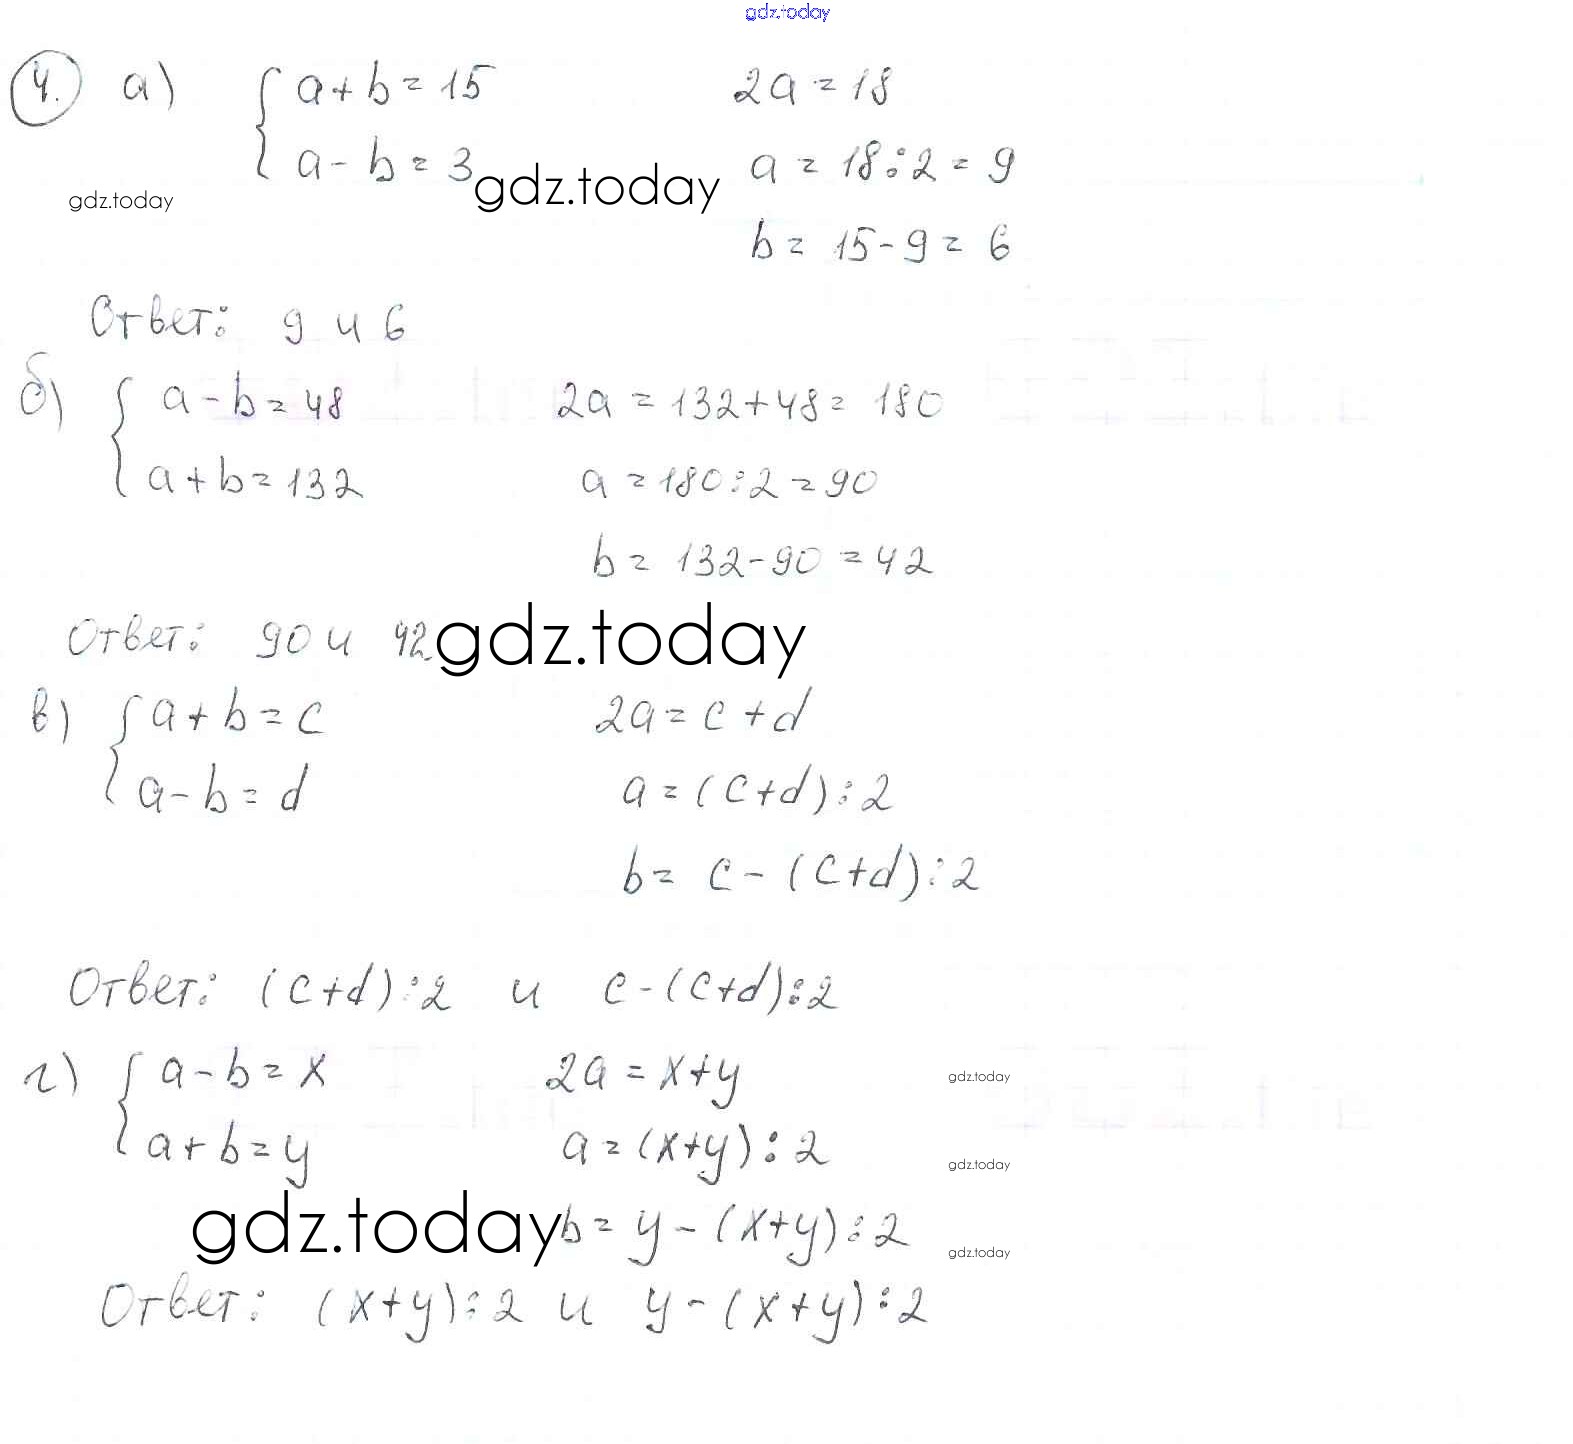 gdz.today
4. а) { a + b = 15 2a = 18
a - b = 3 gdz.today a = 18 : 2 = 9
gdz.today
b = 15 - 9 = 6
Ответ: 9 и 6
б) { a - b = 48 2a = 132 + 48 = 180
a + b = 132 a = 180 : 2 = 90
b = 132 - 90 = 42
Ответ: 90 и 42 gdz.today
в) { a + b = c 2a = c + d
a - b = d a = (c + d) : 2
b = c - (c + d) : 2
Ответ: (c + d) : 2 и c - (c + d) : 2
г) { a - b = x 2a = x + y gdz.today
a + b = y a = (x + y) : 2 gdz.today
gdz.today b = y - (x + y) : 2 gdz.today
Ответ: (x + y) : 2 и y - (x + y) : 2